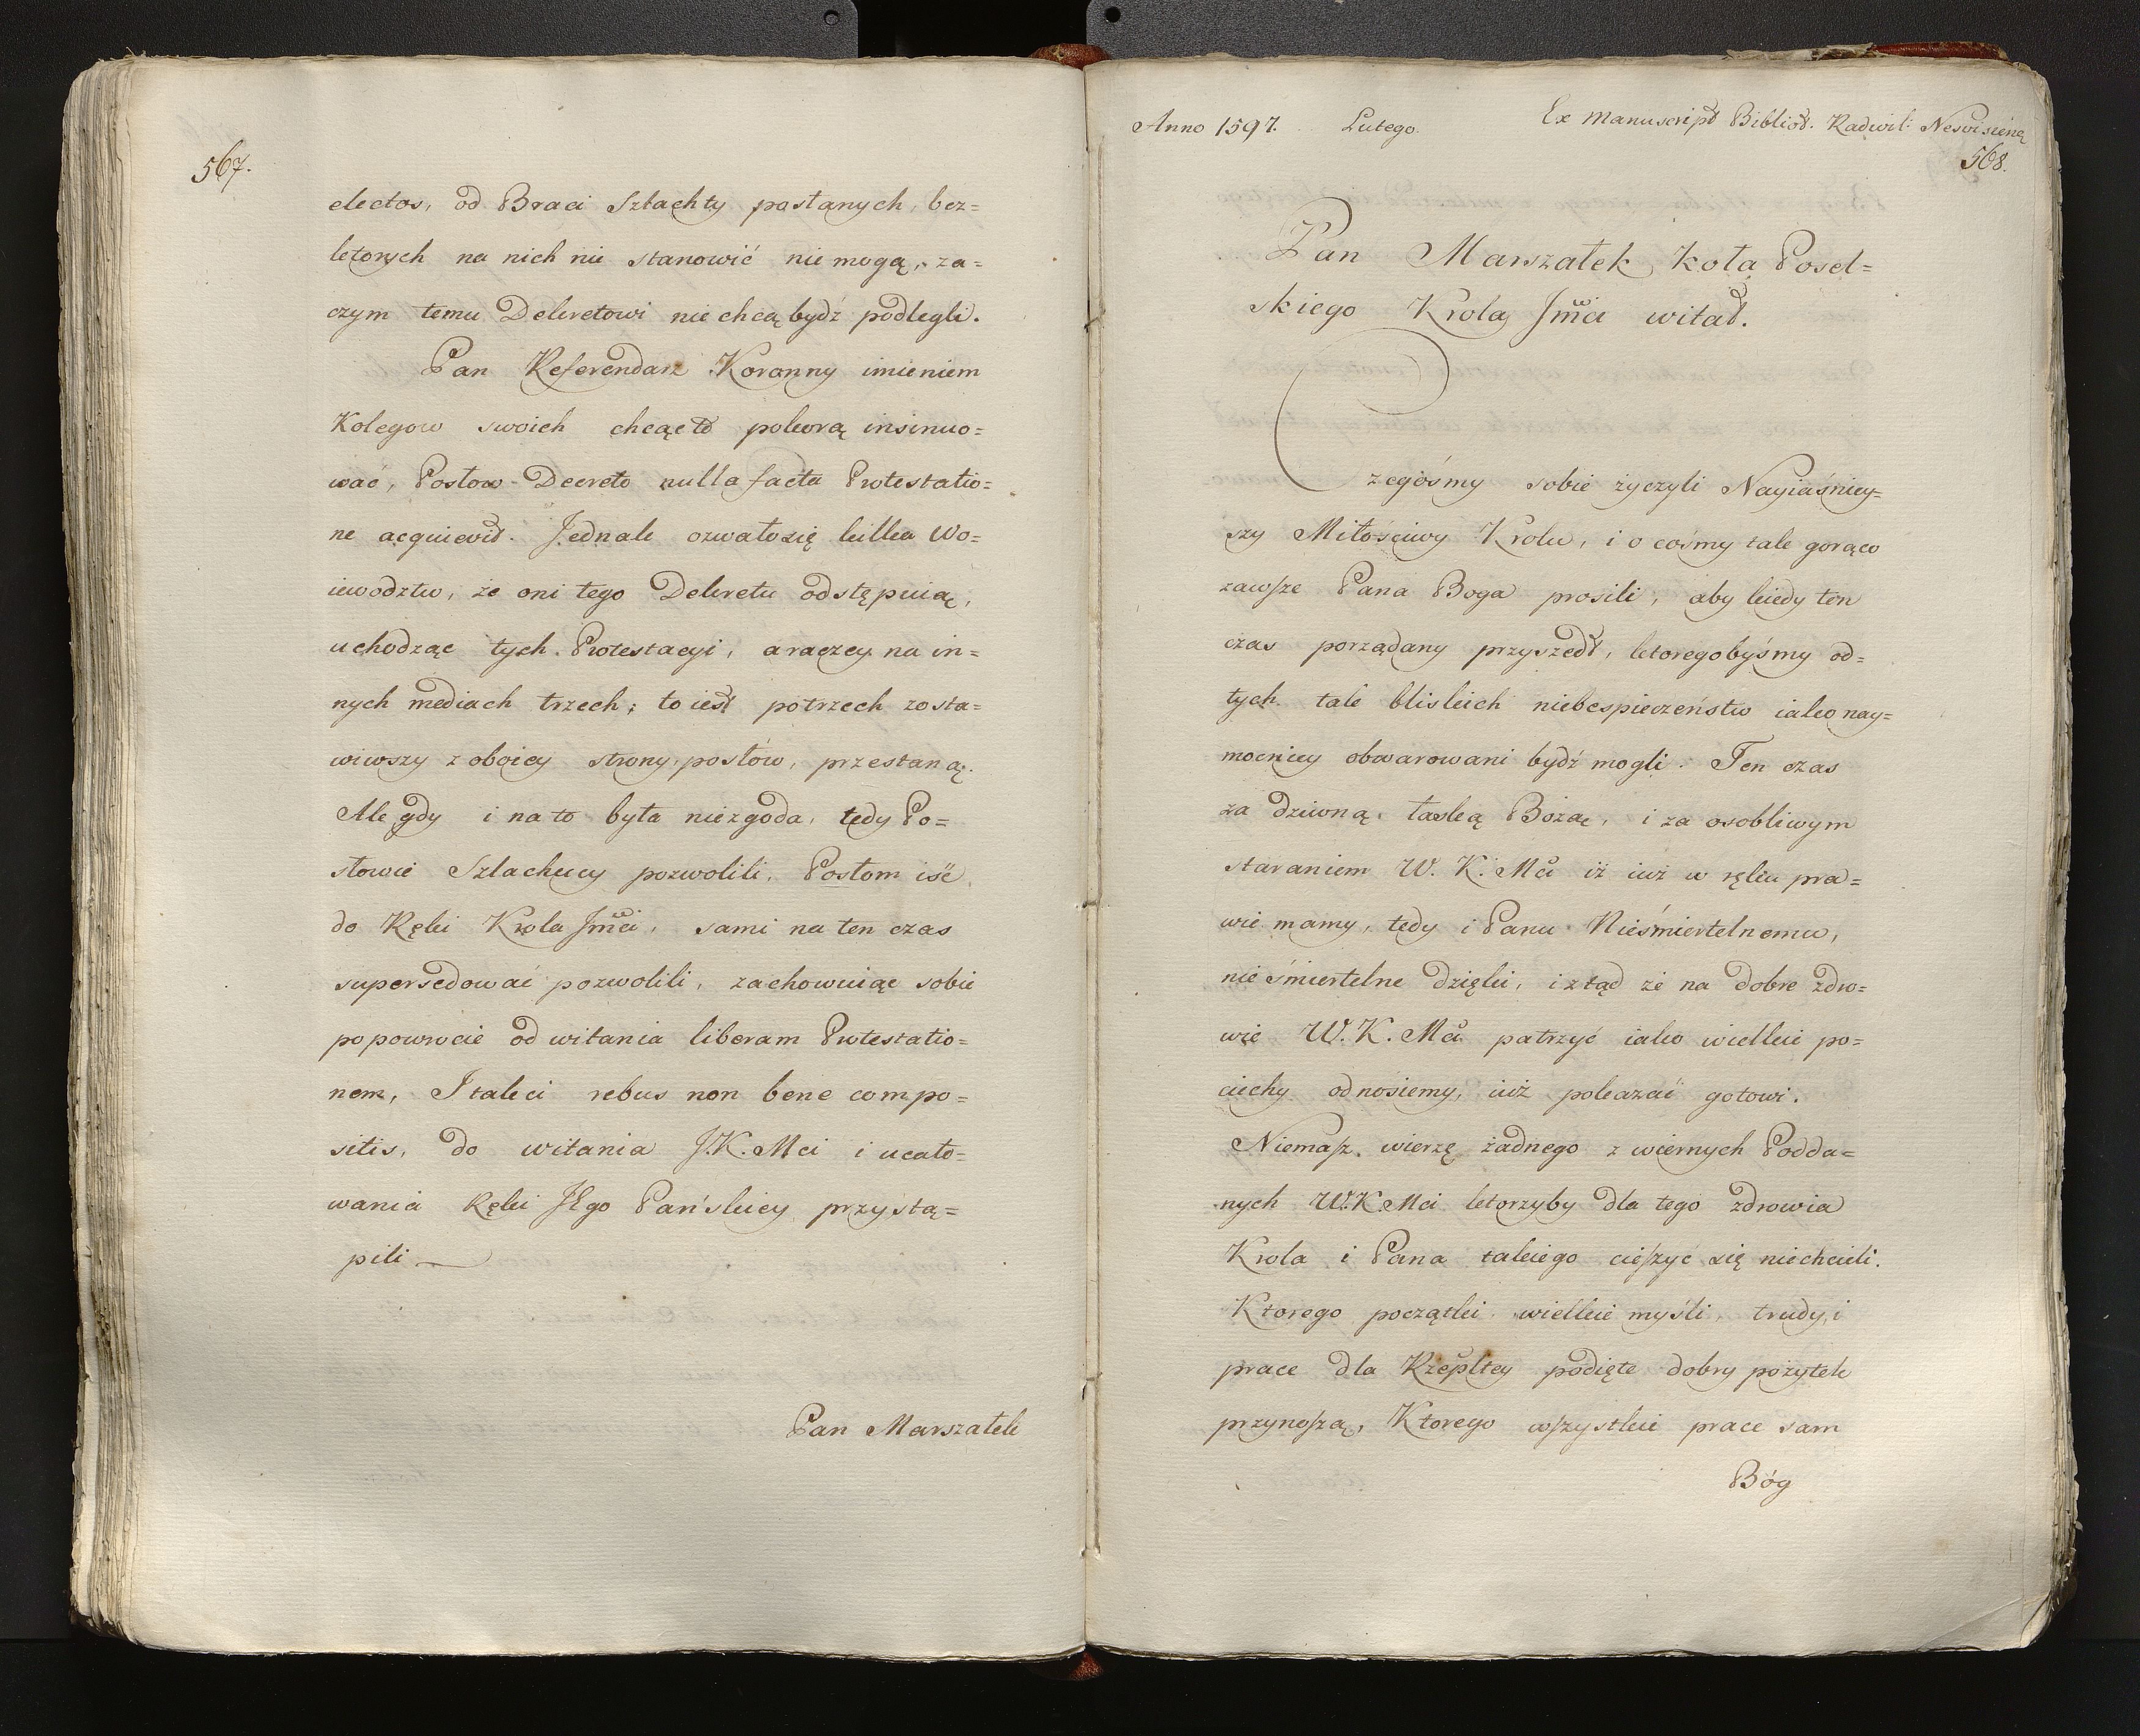 567.
electos, od Braci Szlachty posłanych, bez=
ktorych na nich nic stanowić nie mogą, za=
czym temu Dekretowi nie chcą bydź podlegli.
Pan Referendarz Koronny imieniem
Kolegow swoich chcąc to pokorą insinuo=
wać, Posłow Decreto nulla facta Protestatio=
ne acquievit. Jednak ozwało się kilka Wo=
iewodztw, że oni tego Dekretu odstępuią,
uchodząc tych Protestacyi, a raczey na in=
nych mediach trzech; to iest po trzech zosta=
wiwszy z oboiey strony posłów, przestaną.
Ale gdy i na to była niezgoda, tedy Po=
słowie Szlacheccy pozwolili, Posłom iść
do Ręki Krola Jmći, sami na ten czas
supersedować pozwolili, zachowuiąc sobie
po powrocie od witania liberam Protestatio=
nem, I tak ci rebus non bene compo=
sitis, do witania J.K.Mci i ucało=
wania Ręki JEgo Pańskiey przystą=
pili
Pan Marszałek
Anno 1597. Lutego. Ex Manuscript Bibliot. Radwil: Nesvisiene
568.
Pan Marszałek koła Posel=
skiego Krola Jmći witał.
Czegośmy sobie życzyli Nayiaśniey=
szy Miłościwy Krolu, i o cośmy tak gorąco
zawsze Pana Boga prosili, aby kiedy ten
czas porządany przyszedł, ktoregobyśmy od=
tych tak bliskich niebespieczeństw iako nay=
mocniey obwarowani bydź mogli. Ten czas
za dziwną łaską Bożą, i za osobliwym
staraniem W. K. Mći iż iuż w ręku pra=
wie mamy, tedy i Panu Nieśmiertelnemu,
nieśmiertelne dzięki, i ztąd że na dobre zdro=
wie W. K. Mći patrzyć iako wielkie po=
ciechy odnosiemy, iuż pokazać gotowi.
Niemasz wierzę żadnego z wiernych Podda=
nych W.K.Mci ktorzyby dla tego zdrowia
Krola i Pana takiego cieszyć się niechcieli.
Ktorego początki wielkie myśli, trudy, i
prace dla Rzepltey podięte dobry pożytek
przynoszą, Ktorego wszystkie prace sam
Bóg